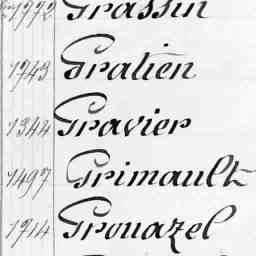 1772 Grassin
1743 Gratien
1344 Gravier
1497 Grimault
1714 Grouazel